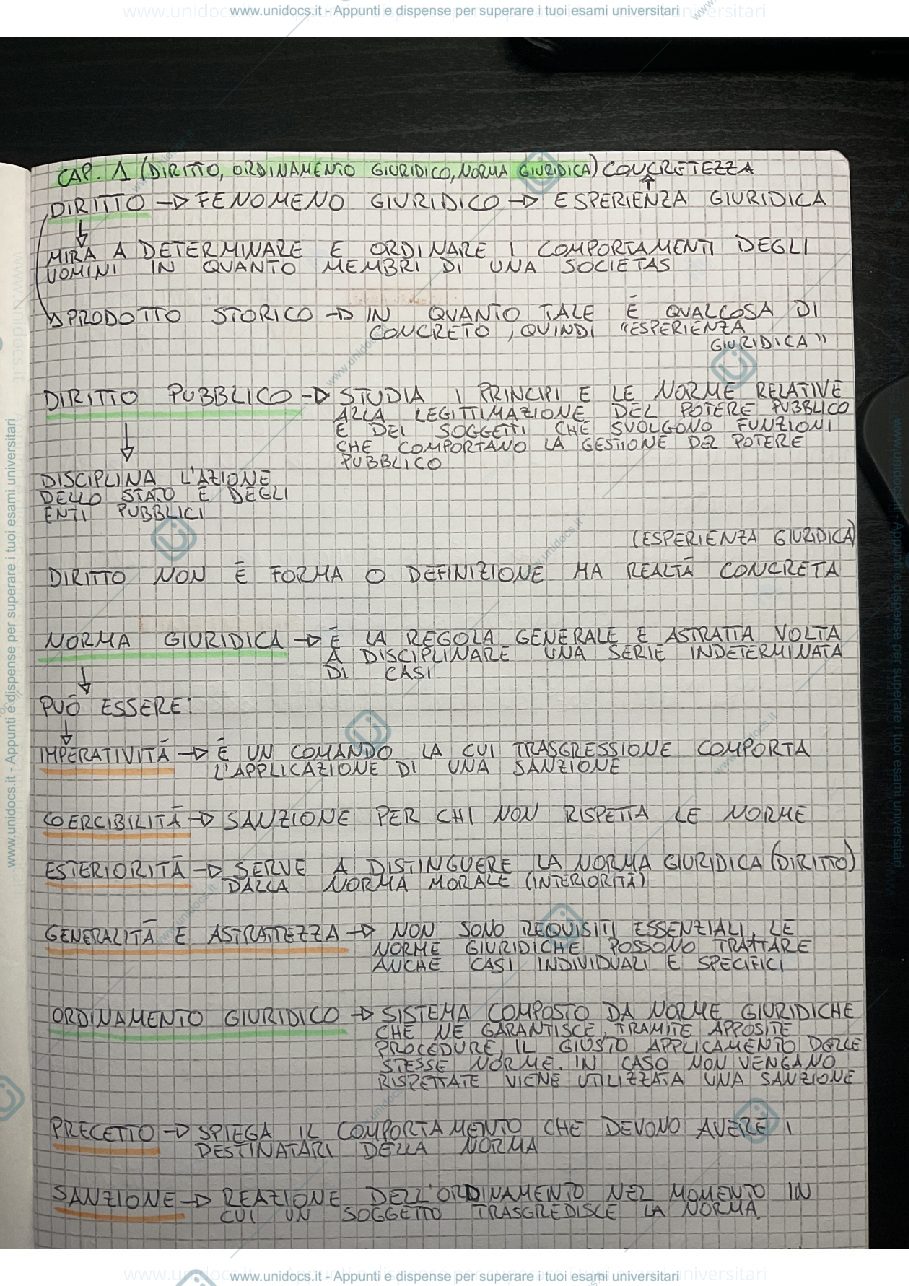 www.unidocs.it - Appunti e dispense per superare i tuoi esami universitari
CAP. 1 (DIRITTO, ORDINAMENTO GIURIDICO, NORMA GIURIDICA) CONCRETEZZA
DIRITTO → FENOMENO GIURIDICO → ESPERIENZA GIURIDICA
MIRA A DETERMINARE E ORDINARE I COMPORTAMENTI DEGLI
UOMINI IN QUANTO MEMBRI DI UNA SOCIETAS
PRODOTTO STORICO → IN QUANTO TALE È QUALCOSA DI
CONCRETO, QUINDI "ESPERIENZA
GIURIDICA"
DIRITTO PUBBLICO → STUDIA I PRINCIPI E LE NORME RELATIVE
ALLA LEGITTIMAZIONE DEL POTERE PUBBLICO
E DEI SOGGETTI CHE SVOLGONO FUNZIONI
CHE COMPORTANO LA GESTIONE DEL POTERE
PUBBLICO
DISCIPLINA L'AZIONE
DELLO STATO E DEGLI
ENTI PUBBLICI
(ESPERIENZA GIURIDICA)
DIRITTO NON È FORMA O DEFINIZIONE MA REALTÀ CONCRETA
NORMA GIURIDICA → È LA REGOLA GENERALE E ASTRATTA VOLTA
A DISCIPLINARE UNA SERIE INDETERMINATA
DI CASI
PUÒ ESSERE:
IMPERATIVITÀ → È UN COMANDO LA CUI TRASGRESSIONE COMPORTA
L'APPLICAZIONE DI UNA SANZIONE
COERCIBILITÀ → SANZIONE PER CHI NON RISPETTA LE NORME
ESTERIORITÀ → SERVE A DISTINGUERE LA NORMA GIURIDICA (DIRITTO)
DALLA NORMA MORALE (INTERIORITÀ)
GENERALITÀ E ASTRATTEZZA → NON SONO REQUISITI ESSENZIALI, LE
NORME GIURIDICHE POSSONO TRATTARE
ANCHE CASI INDIVIDUALI E SPECIFICI
ORDINAMENTO GIURIDICO → SISTEMA COMPOSTO DA NORME GIURIDICHE
CHE NE GARANTISCE, TRAMITE APPOSITE
PROCEDURE, IL GIUSTO APPLICAMENTO DELLE
STESSE NORME. IN CASO NON VENGANO
RISPETTATE VIENE UTILIZZATA UNA SANZIONE
PRECETTO → SPIEGA IL COMPORTAMENTO CHE DEVONO AVERE I
DESTINATARI DELLA NORMA
SANZIONE → REAZIONE DELL'ORDINAMENTO NEL MOMENTO IN
CUI UN SOGGETTO TRASGREDISCE LA NORMA.
www.unidocs.it - Appunti e dispense per superare i tuoi esami universitari
www.unidocs.it - Appunti e dispense per superare i tuoi esami universitari